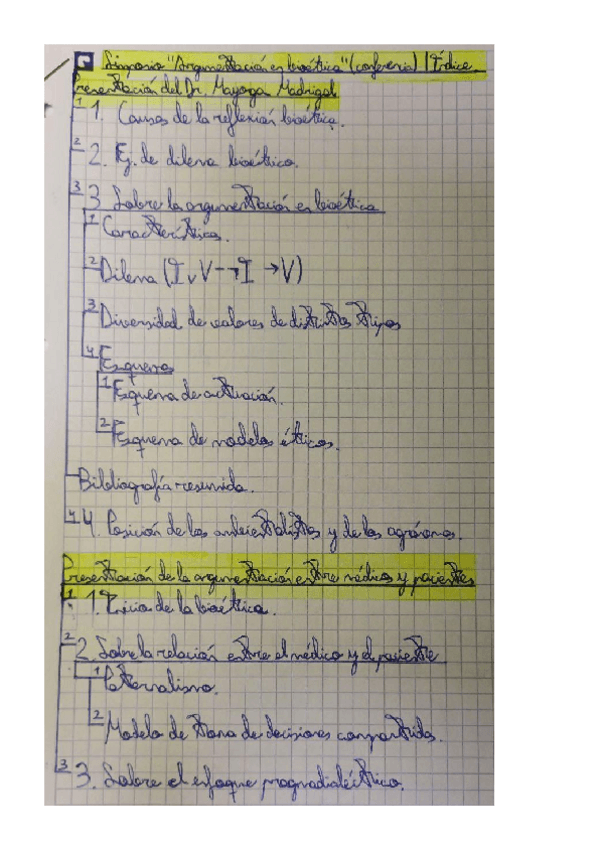 Simposio "Argumentación en bioética" (conferencia) | Índice
Presentación del Dr. Mayorga Madrigal
1 1. Causas de la reflexión bioética.
2 2. Ej. de dilema bioético.
3 3 Sobre la argumentación en bioética
1 Características.
2 Dilema (I v V → ¬I → V)
3 Diversidad de valores de distintos tipos
4 Esquemas
1 Esquema de actuación.
2 Esquema de modelos éticos.
Bibliografía resumida.
4 4. Posición de los ambientalistas y de los agrónomos.
Presentación de la argumentación entre médicos y pacientes
1 1. Inicio de la bioética.
2 2. Sobre la relación entre el médico y el paciente
1 Paternalismo.
2 Modelo de toma de decisiones compartida.
3 3. Sobre el enfoque pragmadialéctico.